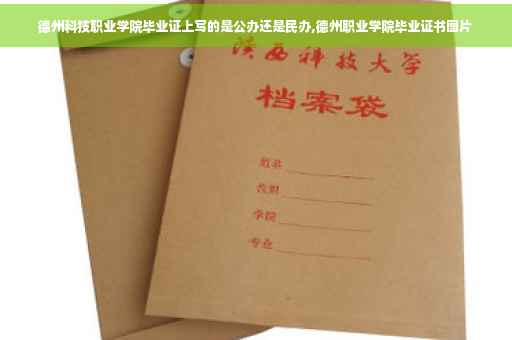 德州科技职业学院毕业证上写的是公办还是民办,德州职业学院毕业证书图片
陕西科技大学
档案袋
姓名
学院
专业